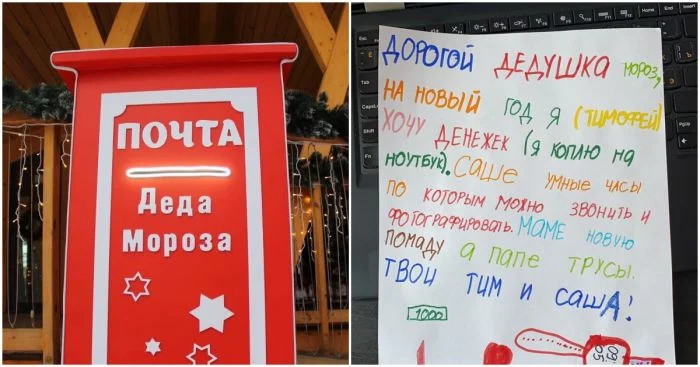 ПОЧТА
Деда
Мороза
ДОРОГОЙ ДЕДУШКА МОРОЗ,
НА НОВЫЙ ГОД Я (ТИМОФЕЙ)
ХОЧУ ДЕНЕЖЕК (Я КОПЛЮ НА
НОУТБУК). САШЕ УМНЫЕ ЧАСЫ
ПО КОТОРЫМ МОЖНО ЗВОНИТЬ И
ФОТОГРАФИРОВАТЬ. МАМЕ НОВУЮ
ПОМАДУ А ПАПЕ ТРУСЫ.
ТВОИ ТИМ И САША!
1000
09: